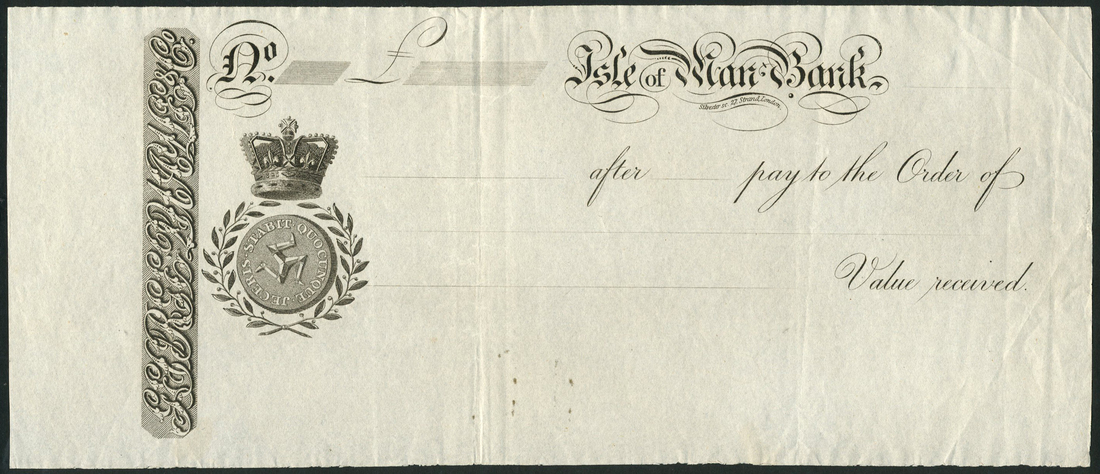 No. £ Isle of Man Bank.
Silvester sc. 27 Strand, London.
after pay to the Order of
STABIT QUOCUNQUE JECERIS
Value received.